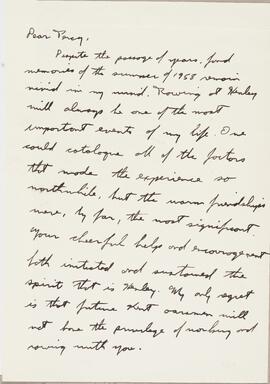 Dear Percy,
Despite the passage of years, fond
memories of the summer of 1968 remain
vivid in my mind. Rowing at Henley
will always be one of the most
important events of my life. One
could catalogue all of the factors
that made the experience so
worthwhile, but the warm friendships
were, by far, the most significant.
Your cheerful help and encouragement
both initiated and sustained the
spirit that is Henley. My only regret
is that future Kent oarsmen will
not have the privilege of working and
rowing with you.